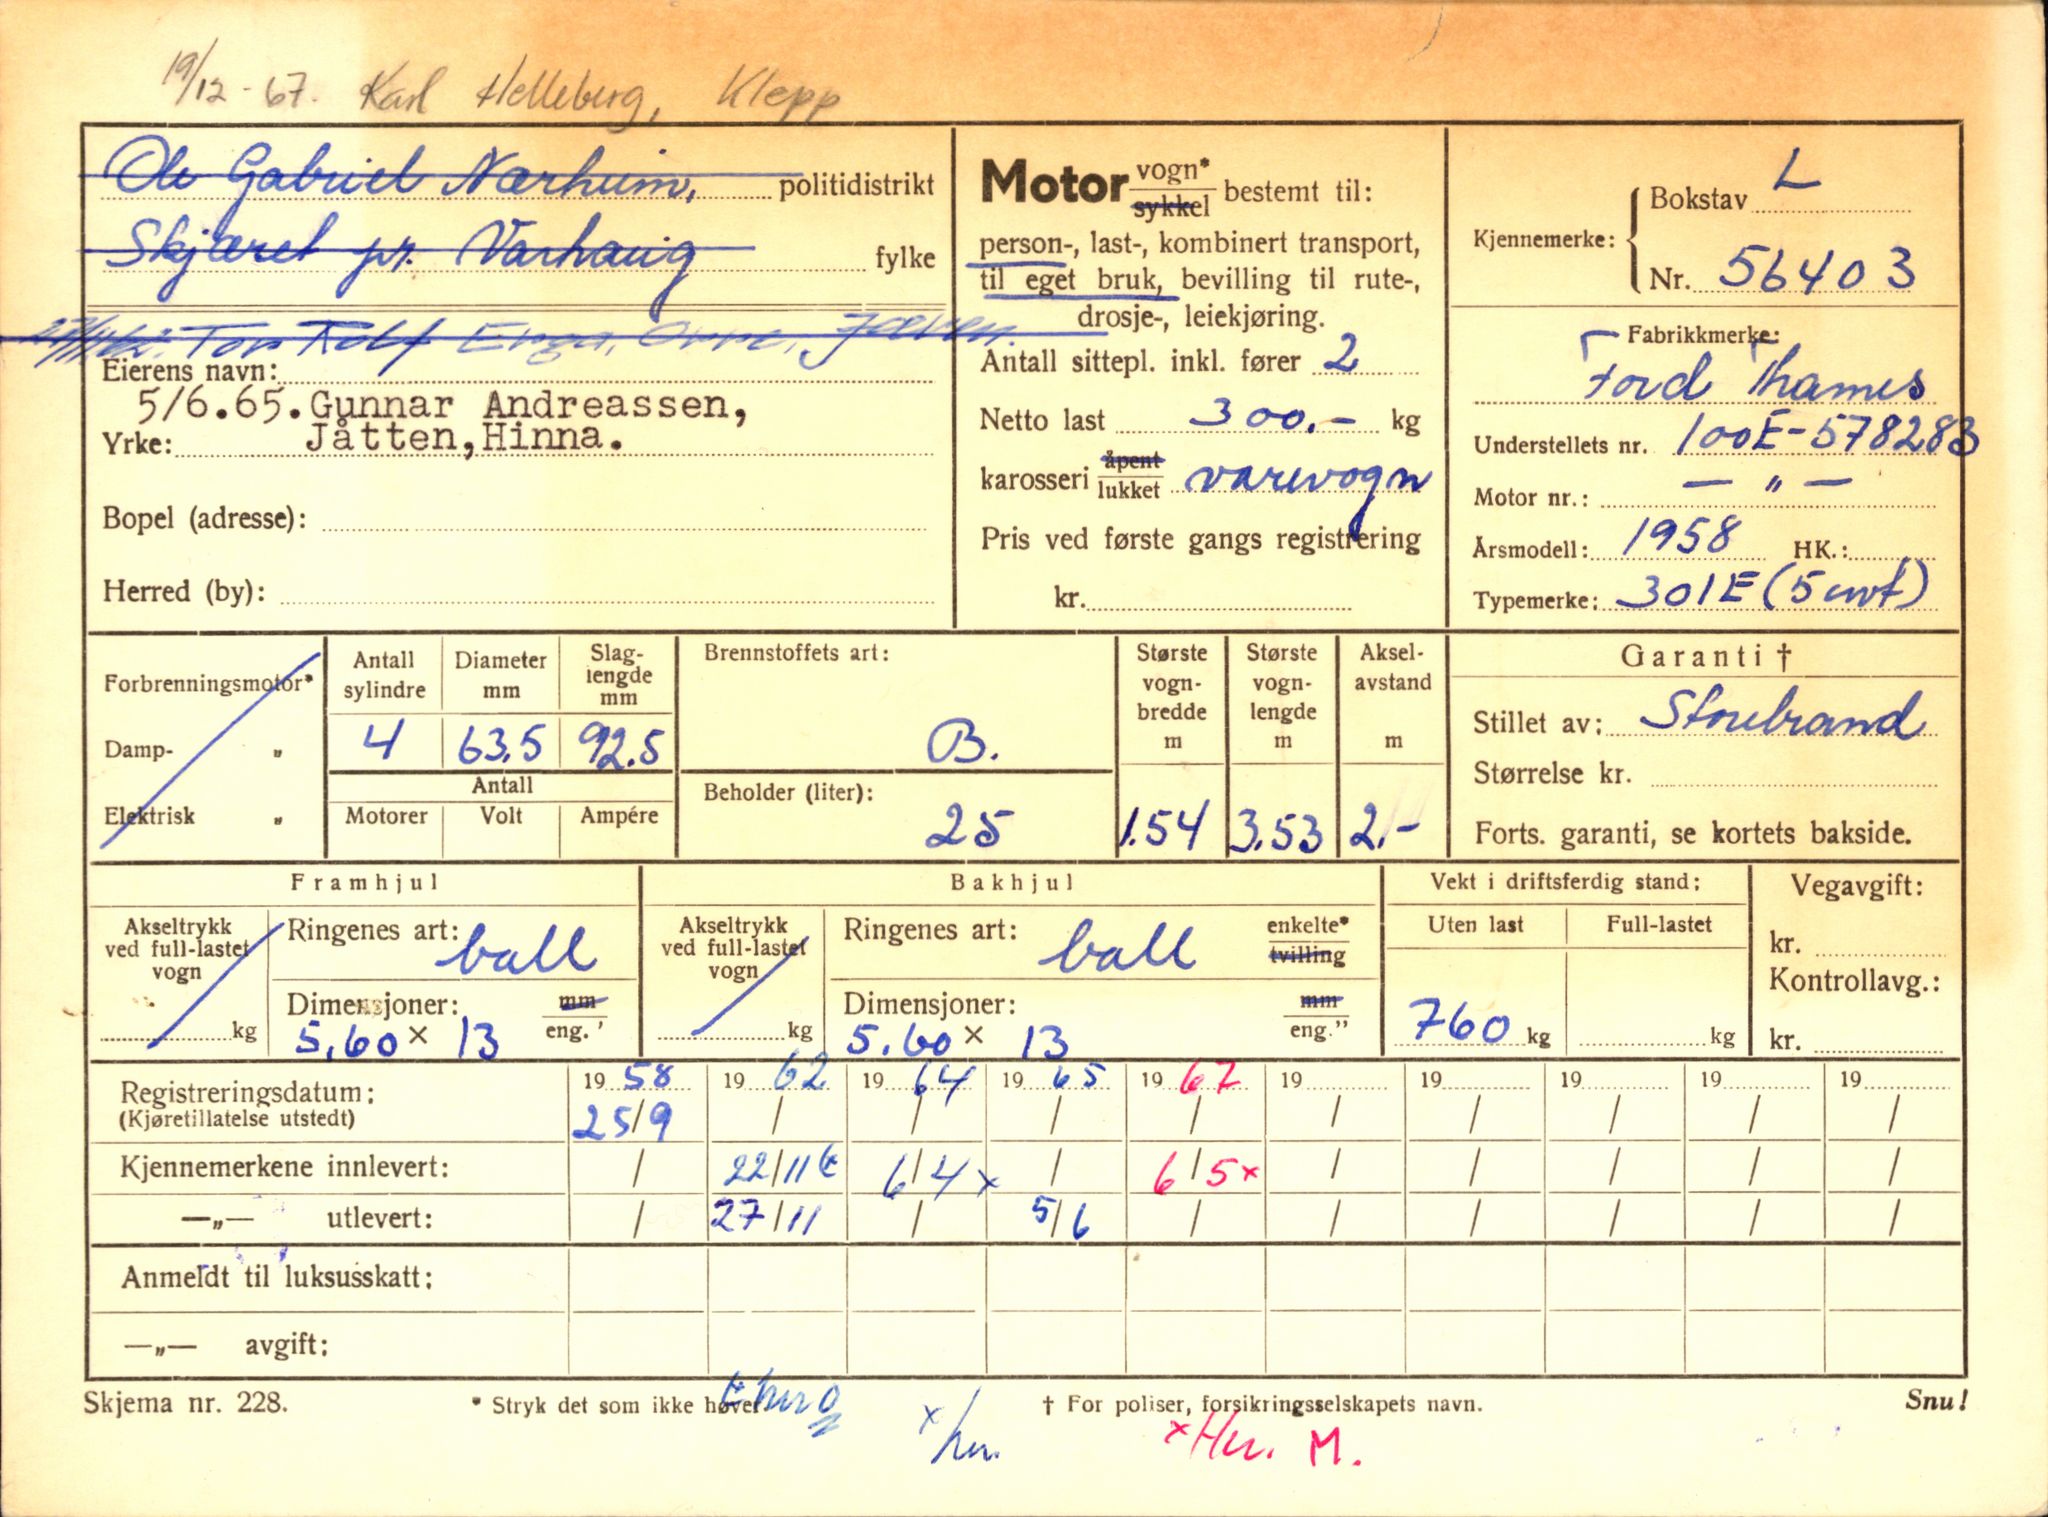 19/12-67. Karl Helleberg, Klepp
Ole Gabriel Nærheim, politidistrikt
Skjæret pr. Varhaug fylke
Tor Rolf Enga, Orre, Jæren.
Eierens navn:
5/6.65. Gunnar Andreassen,
Yrke: Jåtten, Hinna.
Bopel (adresse):
Herred (by):
Motor vogn* sykkel bestemt til:
person-, last-, kombinert transport,
til eget bruk, bevilling til rute-,
drosje-, leiekjøring.
Antall sittepl. inkl. fører 2
Netto last 300.- kg
karosseri åpent lukket varevogn
Pris ved første gangs registrering
kr.
Kjennemerke: Bokstav L
Nr. 56403
Fabrikkmerke:
Ford Thames
Understellets nr. 100E-578283
Motor nr.: — „ —
Årsmodell: 1958 HK.:
Typemerke: 301E (5 cwt)
Forbrenningsmotor*
Damp- „
Elektrisk „
Antall sylindre 4
Diameter mm 63.5
Slaglengde mm 92.5
Antall
Motorer Volt Ampére
Brennstoffets art:
B.
Beholder (liter):
25
Største vogn-bredde m 1.54
Største vogn-lengde m 3.53
Aksel-avstand m 2.-
Garanti †
Stillet av: Storebrand
Størrelse kr.
Forts. garanti, se kortets bakside.
Framhjul
Akseltrykk ved full-lastet vogn kg
Ringenes art: ball
Dimensjoner: mm eng."
5.60 x 13
Bakhjul
Akseltrykk ved full-lastet vogn kg
Ringenes art: ball enkelte* tvilling
Dimensjoner: mm eng."
5.60 x 13
Vekt i driftsferdig stand:
Uten last Full-lastet
760 kg kg
Vegavgift:
kr.
Kontrollavg.:
kr.
Registreringsdatum: 1958 1962 1964 1965 1967 19 19 19 19 19
(Kjøretillatelse utstedt) 25/9 / / / / / / / / /
Kjennemerkene innlevert: / 22/11 6/4 x / 6/5 x / / / / /
—„— utlevert: / 27/11 / 5/6 / / / / / /
Anmeldt til luksusskatt:
—„— avgift:
Skjema nr. 228. * Stryk det som ikke høver. † For poliser, forsikringsselskapets navn. Snu!
x Her. M.